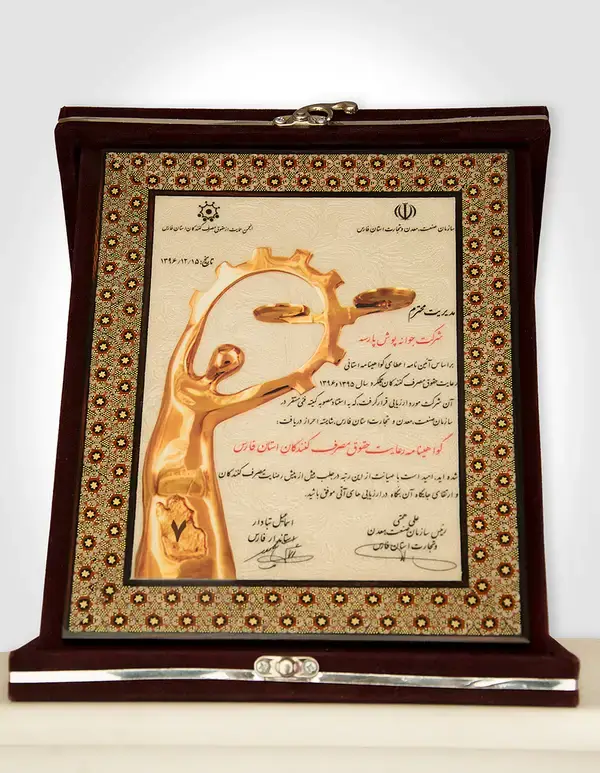 سازمان صنعت، معدن و تجارت استان فارس
انجمن حمایت از حقوق مصرف کنندگان استان فارس
تاریخ: ۱۳۹۶/۱۲/۱۵
مدیریت محترم
شرکت جوانه پوش پارسه
براساس آئین نامه اعطای گواهینامه استانی
رعایت حقوق مصرف کنندگان عملکرد سال ۱۳۹۵ و ۱۳۹۶
آن شرکت مورد ارزیابی قرار گرفت، که به استناد مصوبه کمیته فنی مستقر در
سازمان صنعت، معدن و تجارت استان فارس، شایسته احراز دریافت:
گواهینامه رعایت حقوق مصرف کنندگان استان فارس
شده اید. امید است با صیانت از این رتبه در جلب بیش از پیش رضایت مصرف کنندگان
و ارتقای جایگاه آن بنگاه در ارزیابی های آتی موفق باشید.
علی همتی
رئیس سازمان صنعت، معدن
و تجارت استان فارس
اسماعیل تبادار
استاندار فارس
۷